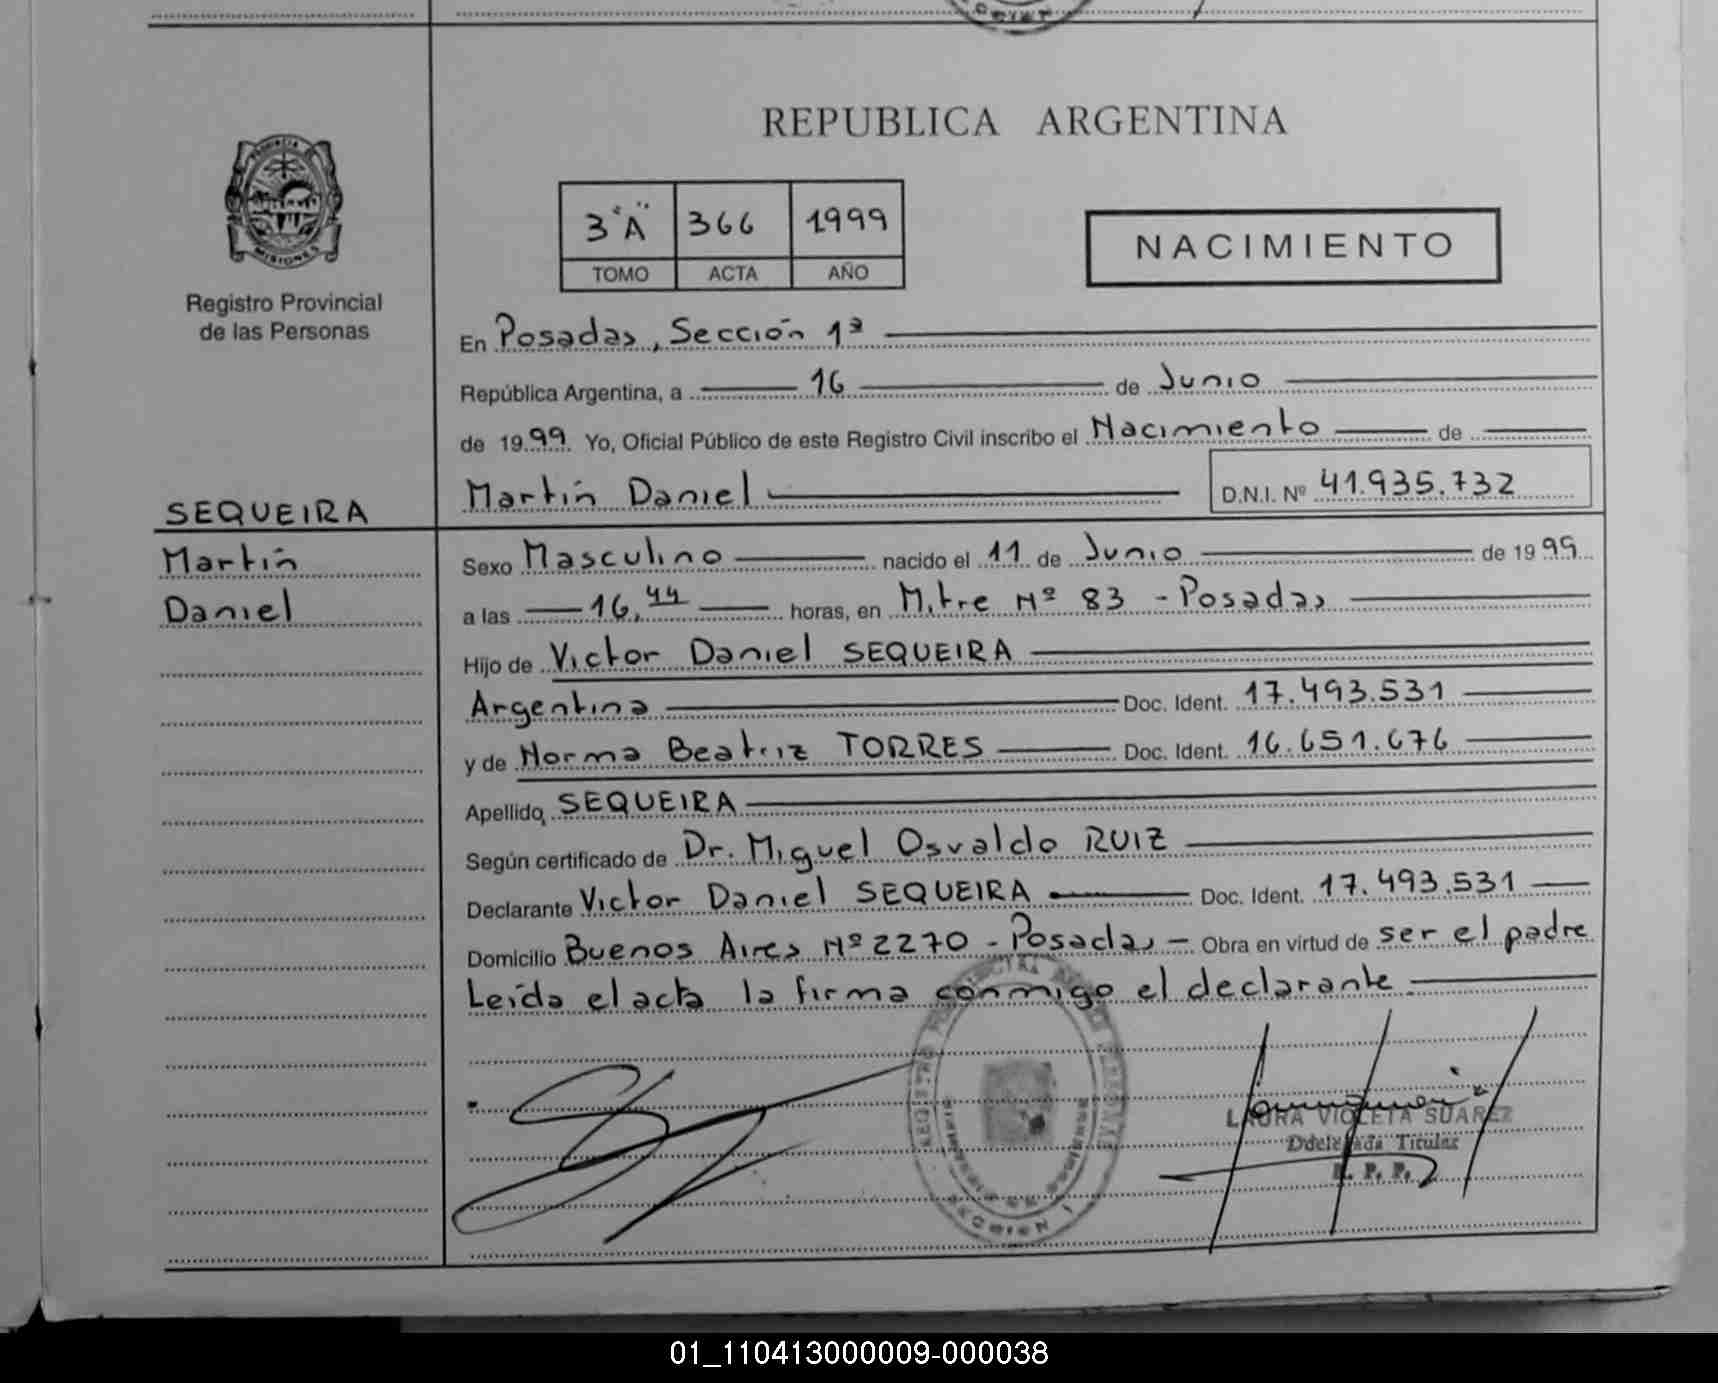 REPUBLICA ARGENTINA
3 "A" 366 1999
TOMO ACTA AÑO
NACIMIENTO
MISIONES
Registro Provincial
de las Personas
En Posadas, Sección 1ª
República Argentina, a 16 de Junio
de 1999 Yo, Oficial Público de este Registro Civil inscribo el Nacimiento de
Martín Daniel D.N.I. Nº 41.935.732
SEQUEIRA
Martín
Daniel
Sexo Masculino nacido el 11 de Junio de 1999
a las 16,44 horas, en Mitre Nº 83 - Posadas
Hijo de Victor Daniel SEQUEIRA
Argentina Doc. Ident. 17.493.531
y de Norma Beatriz TORRES Doc. Ident. 16.651.676
Apellido, SEQUEIRA
Según certificado de Dr. Miguel Osvaldo RUIZ
Declarante Victor Daniel SEQUEIRA Doc. Ident. 17.493.531
Domicilio Buenos Aires Nº 2270 - Posadas - Obra en virtud de ser el padre
Leída el acta la firma conmigo el declarante
LAURA VIOLETA SUAREZ
Ddelegada Titular
R. P. P.
01_110413000009-000038